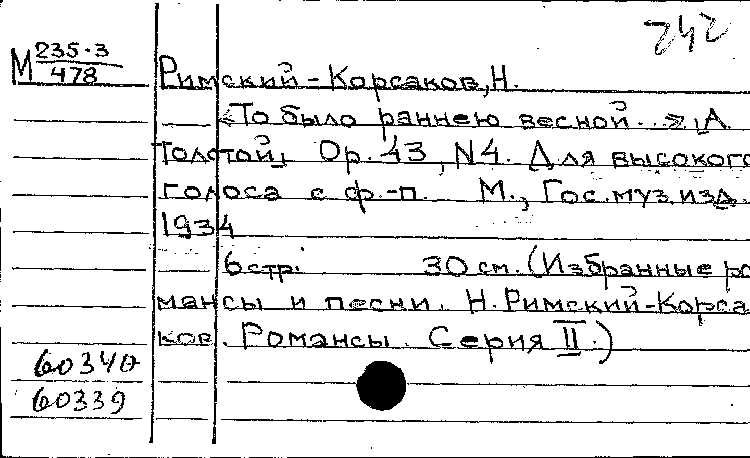 242
М 235-3
478
Римский-Корсаков, Н.
«То было раннею весной..» [А.
Толстой] Ор. 43, N4. Для высокого
голоса с ф.-п. М., Гос. муз. изд.
1934
6 стр. 30 см. (Избранные ро
мансы и песни. Н. Римский-Корса
ков. Романсы. Серия II.)
60340
60339